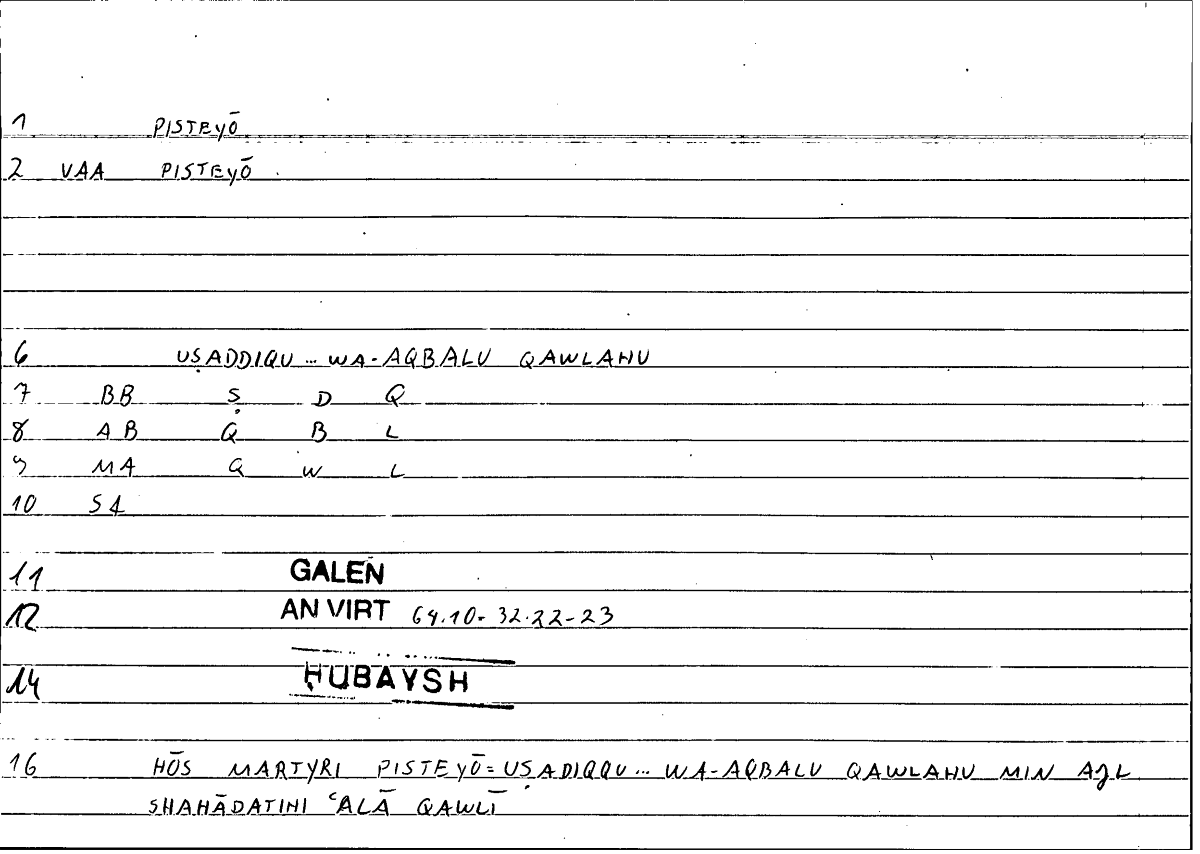 1 PISTEyŌ
2 VAA PISTEyŌ
6 UṢADDIQU ... WA-AQBALU QAWLAHU
7 BB Ṣ D Q
8 AB Q B L
9 MA Q W L
10 S4
11 GALEN
12 AN VIRT 64.10-32.22-23
14 ḤUBAYSH
16 HŌS MARTYRI PISTEyŌ = UṢADIQQU ... WA-AQBALU QAWLAHU MIN AJL
SHAHĀDATINI ʿALĀ QAWLĪ